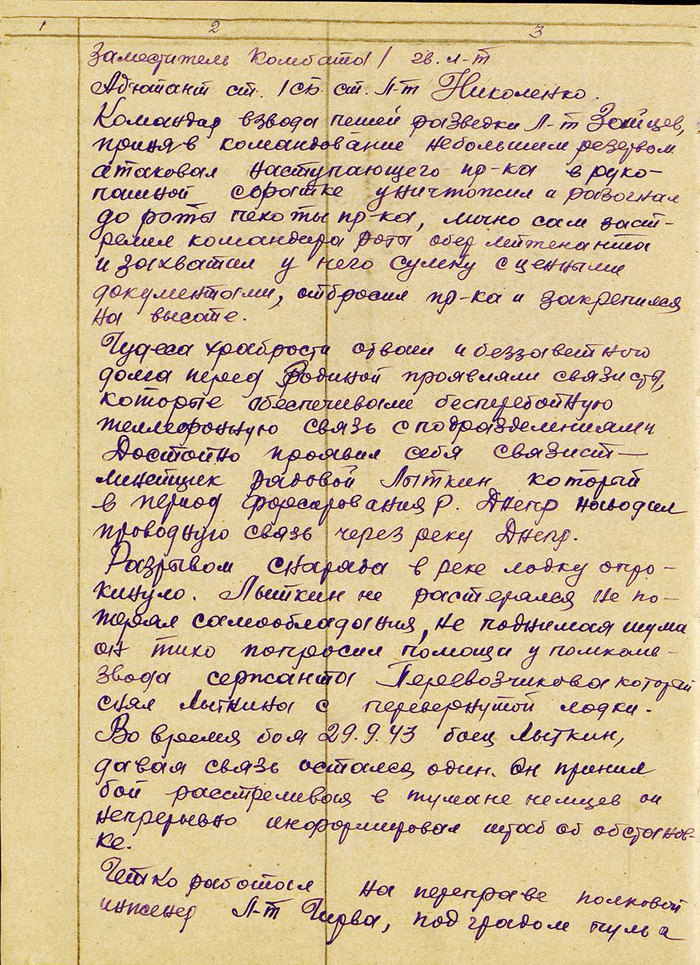 1 2 3
Заместитель Комбата 1 гв. л-т
Адютант ст. 1 сб. ст. Л-т Николенко.
Командир взвода пешей разведки Л-т Зайцев,
приняв командование небольшим резервом
атаковал наступающего пр-ка в руко-
пашной сфатке уничтожил и разогнал
до роты пехоты пр-ка, лично сам заст-
релил командира роты обер лейтенанта
и захватил у него сумку с ценными
документами, отбросил пр-ка и закрепился
на высоте.
Чудеса храбрости отваги и беззаветного
долга перед Родиной проявляли связисты,
которые обеспечивали бесперебойную
телефонную связь с подразделениями
Достойно проявил себя связист—
линейщик рядовой Лыткин который
в период форсирования р. Днепр наводил
проводную связь через реку Днепр.
Разрывом снаряда в реке лодку опро-
кинуло. Лыткин не растерялся не по-
терял самообладания, не поднимая шума
он тихо попросил помощи у помком-
взвода сержанта Перевозчикова который
снял Лыткина с перевернутой лодки.
Во время боя 29.9.43 боец Лыткин,
давая связь остался один. Он принял
бой расстреливая в тумане немцев он
непрерывно информировал штаб об обстанов-
ке.
Четко работал на переправе полковой
инженер Л-т Гирва, под градом пуль а